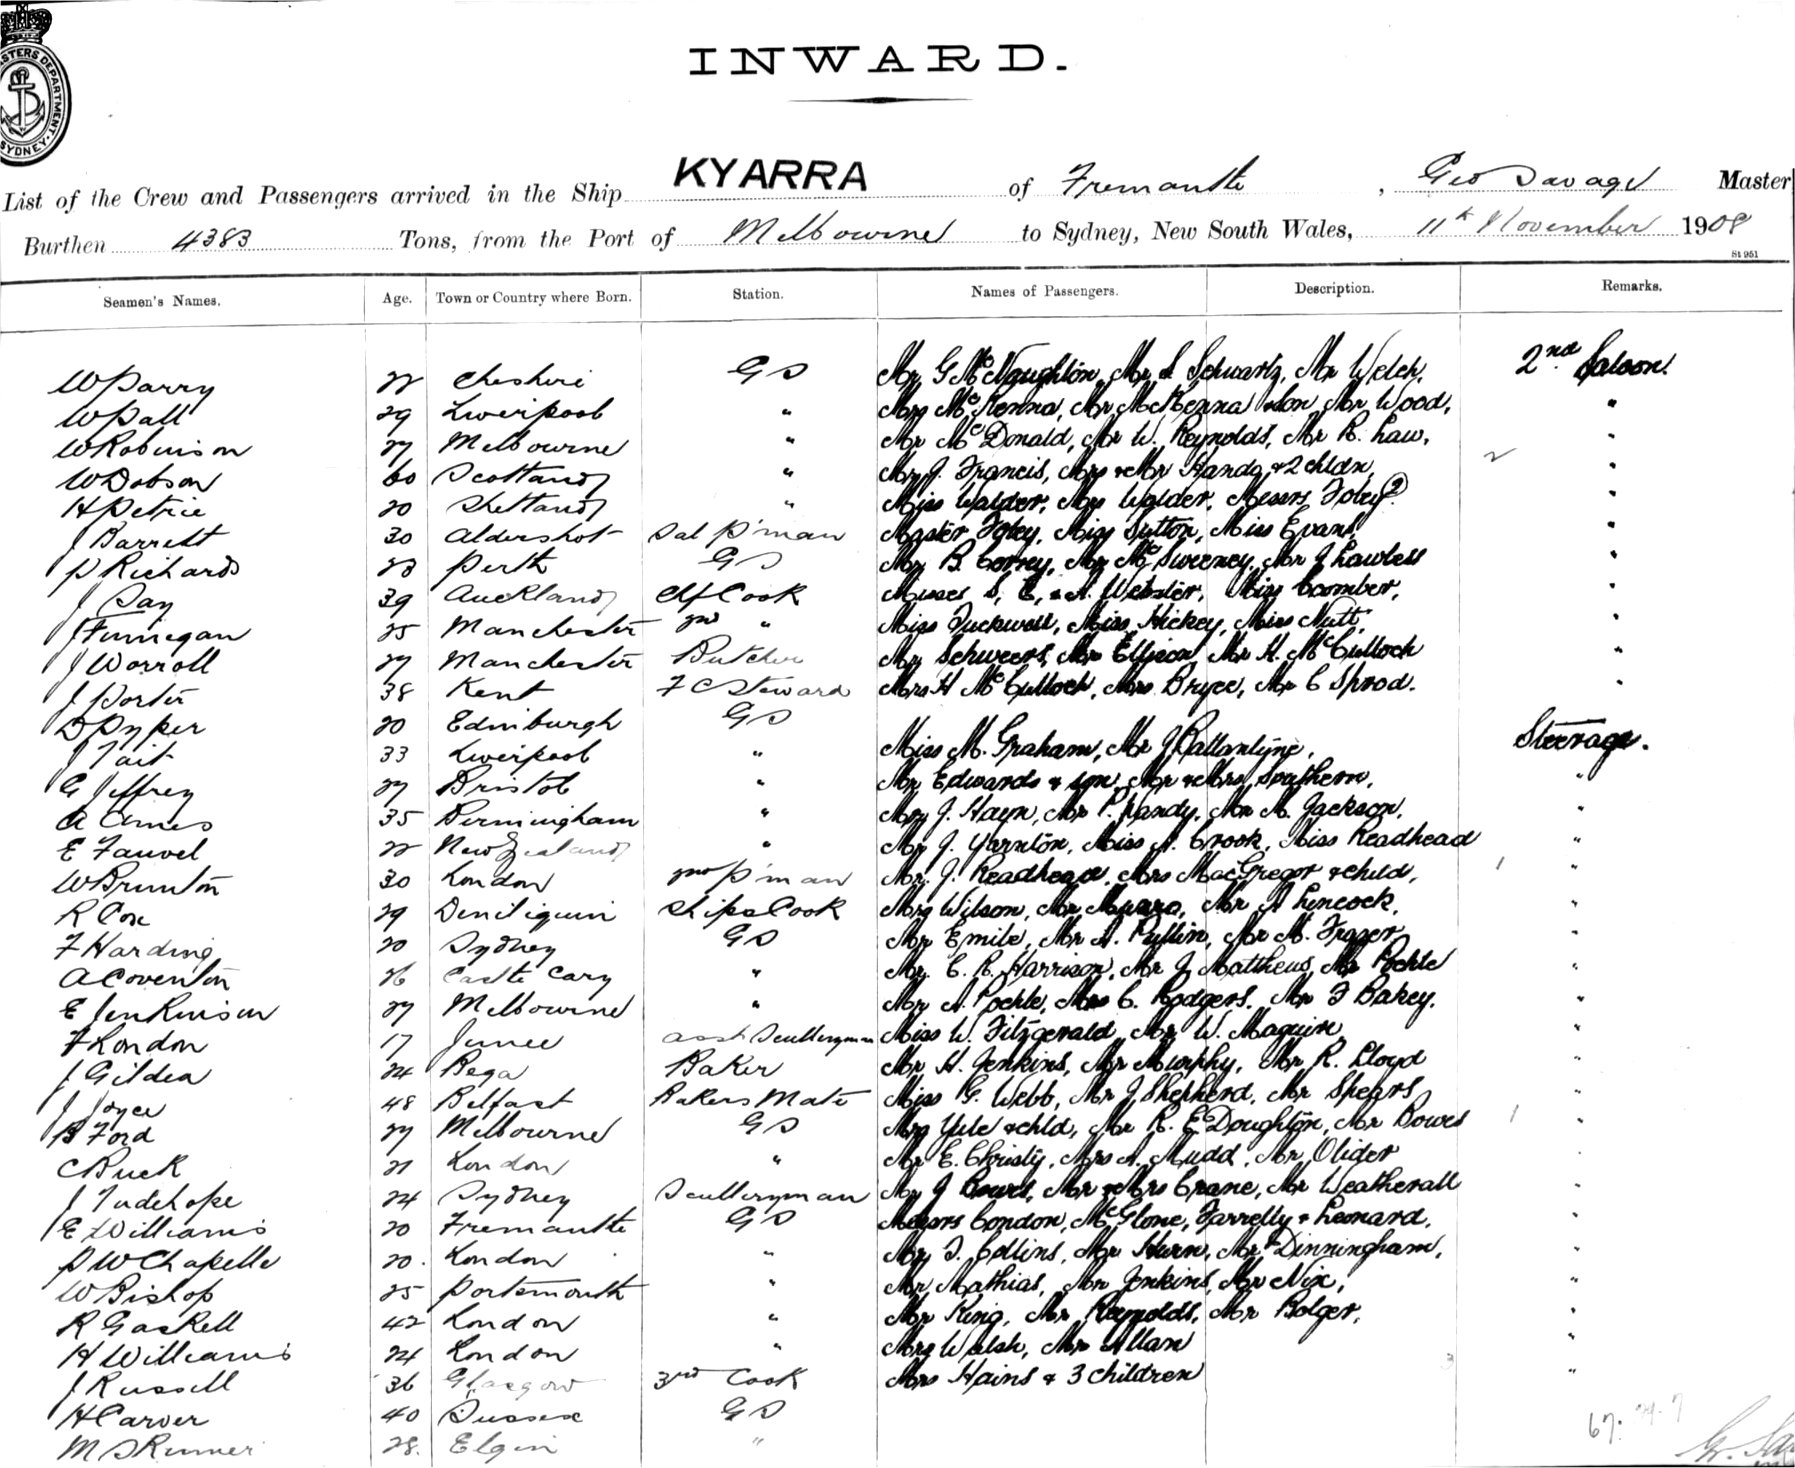 MASTERS DEPARTMENT SYDNEY
INWARD.
List of the Crew and Passengers arrived in the Ship KYARRA of Fremantle, Geo Savage Master
Burthen 4383 Tons, from the Port of Melbourne to Sydney, New South Wales, 11th November 1908
St 951
Seamen's Names. Age. Town or Country where Born. Station. Names of Passengers. Description. Remarks.
W Parry 22 Cheshire GS Mr G McNaughton, Mr S Schwartz, Mr Welch. 2nd Saloon.
W Pall 29 Liverpool " Mrs McKenna, Mr McKenna & Son Mr Wood, "
W Robinson 27 Melbourne " Mr McDonald, Mr W. Reynolds, Mr R. Law, "
W Dobson 60 Scotland " Mr J. Francis, Mrs & Mr Handa & 2 chldn, 2 "
H Petrie 20 Shetland " Miss Walder, Mrs Walder, Messrs Foley (2) "
J Barrett 30 Aldershot Sal P'man Master Foley, Miss Sutton, Miss Evans, "
P Richards 23 Perth GS Mr B. Correy, Mr McSweeney, Mr J Lawless "
J Day 39 Auckland Chf Cook Misses S, E, & A. Webster, Miss Coomber, "
J Finnegan 25 Manchester 2nd " Miss Tuckwell, Miss Hickey, Miss Nutt, "
J Worroll 27 Manchester Butcher Mr Schweers, Mr Ellison Mr H. McCulloch "
J Porter 38 Kent F C Steward Mrs H McCulloch, Mrs Bryce, Mr C Sprod. "
D Pyper 20 Edinburgh GS Steerage.
J Tait 33 Liverpool " Miss M. Graham, Mr J Ballantyne,
G Jeffrey 27 Bristol " Mr Edwards & son, Mr & Mrs Southern, "
A Ames 35 Birmingham " Mr J. Hayn, Mr P. Handy, Mr A. Jackson, "
E Fauvel 22 New Zealand " Mr J. Yarnton, Miss A. Crook, Miss Readhead "
W Brunton 30 London 2nd P'man Mr J. Readhead, Mrs MacGregor & child, 1 "
R Cox 29 Deniliquin Ships Cook Mrs Wilson, Mr Munro, Mr A Lencock, "
F Harding 20 Sydney GS Mr Emile, Mr A. Pullin, Mr M. Fraser, "
A Coventon 26 Castle Cary " Mr C. R. Harrison, Mr J Matthews, Mr Pochle "
E Jenkinson 27 Melbourne " Mr A Pochle, Mrs C. Rodgers, Mr F Bakey. "
F London 17 Junee asst Sculleryman Miss W. Fitzgerald, Mr W. Maguire "
J Gildea 24 Bega Baker Mr H. Jenkins, Mr Murphy, Mr R. Lloyd "
J Joyce 48 Belfast Bakers Mate Miss G. Webb, Mr J Shepherd, Mr Spears "
B Ford 27 Melbourne GS Mrs Yule & chld, Mr R. E Doughton, Mr Bowes 1 "
C Buck 21 London " Mr E. Christy, Mrs A. Mudd, Mr Olider "
J Tudehope 24 Sydney Sculleryman Mr J Bowes, Mr & Mrs Crane, Mr Weatherall "
E Williams 20 Fremantle GS Messrs Condon, McGlone, Farrelly & Leonard, "
P W Chapelle 20. London " Mr T. Collins, Mr Hurn, Mr Dinningham, "
W Bishop 25 Portsmouth " Mr Mathias, Mr Jenkins, Mr Nix, "
R Gaskell 42 London " Mr King, Mr Reynolds, Mr Bolger, "
H Williams 24 London " Mrs Walsh, Mr Allan "
J Russell 36 Glasgow 3rd Cook Mrs Hains & 3 children 3 "
H Carver 40 Sussex GS
M Skinner 28. Elgin " 67.